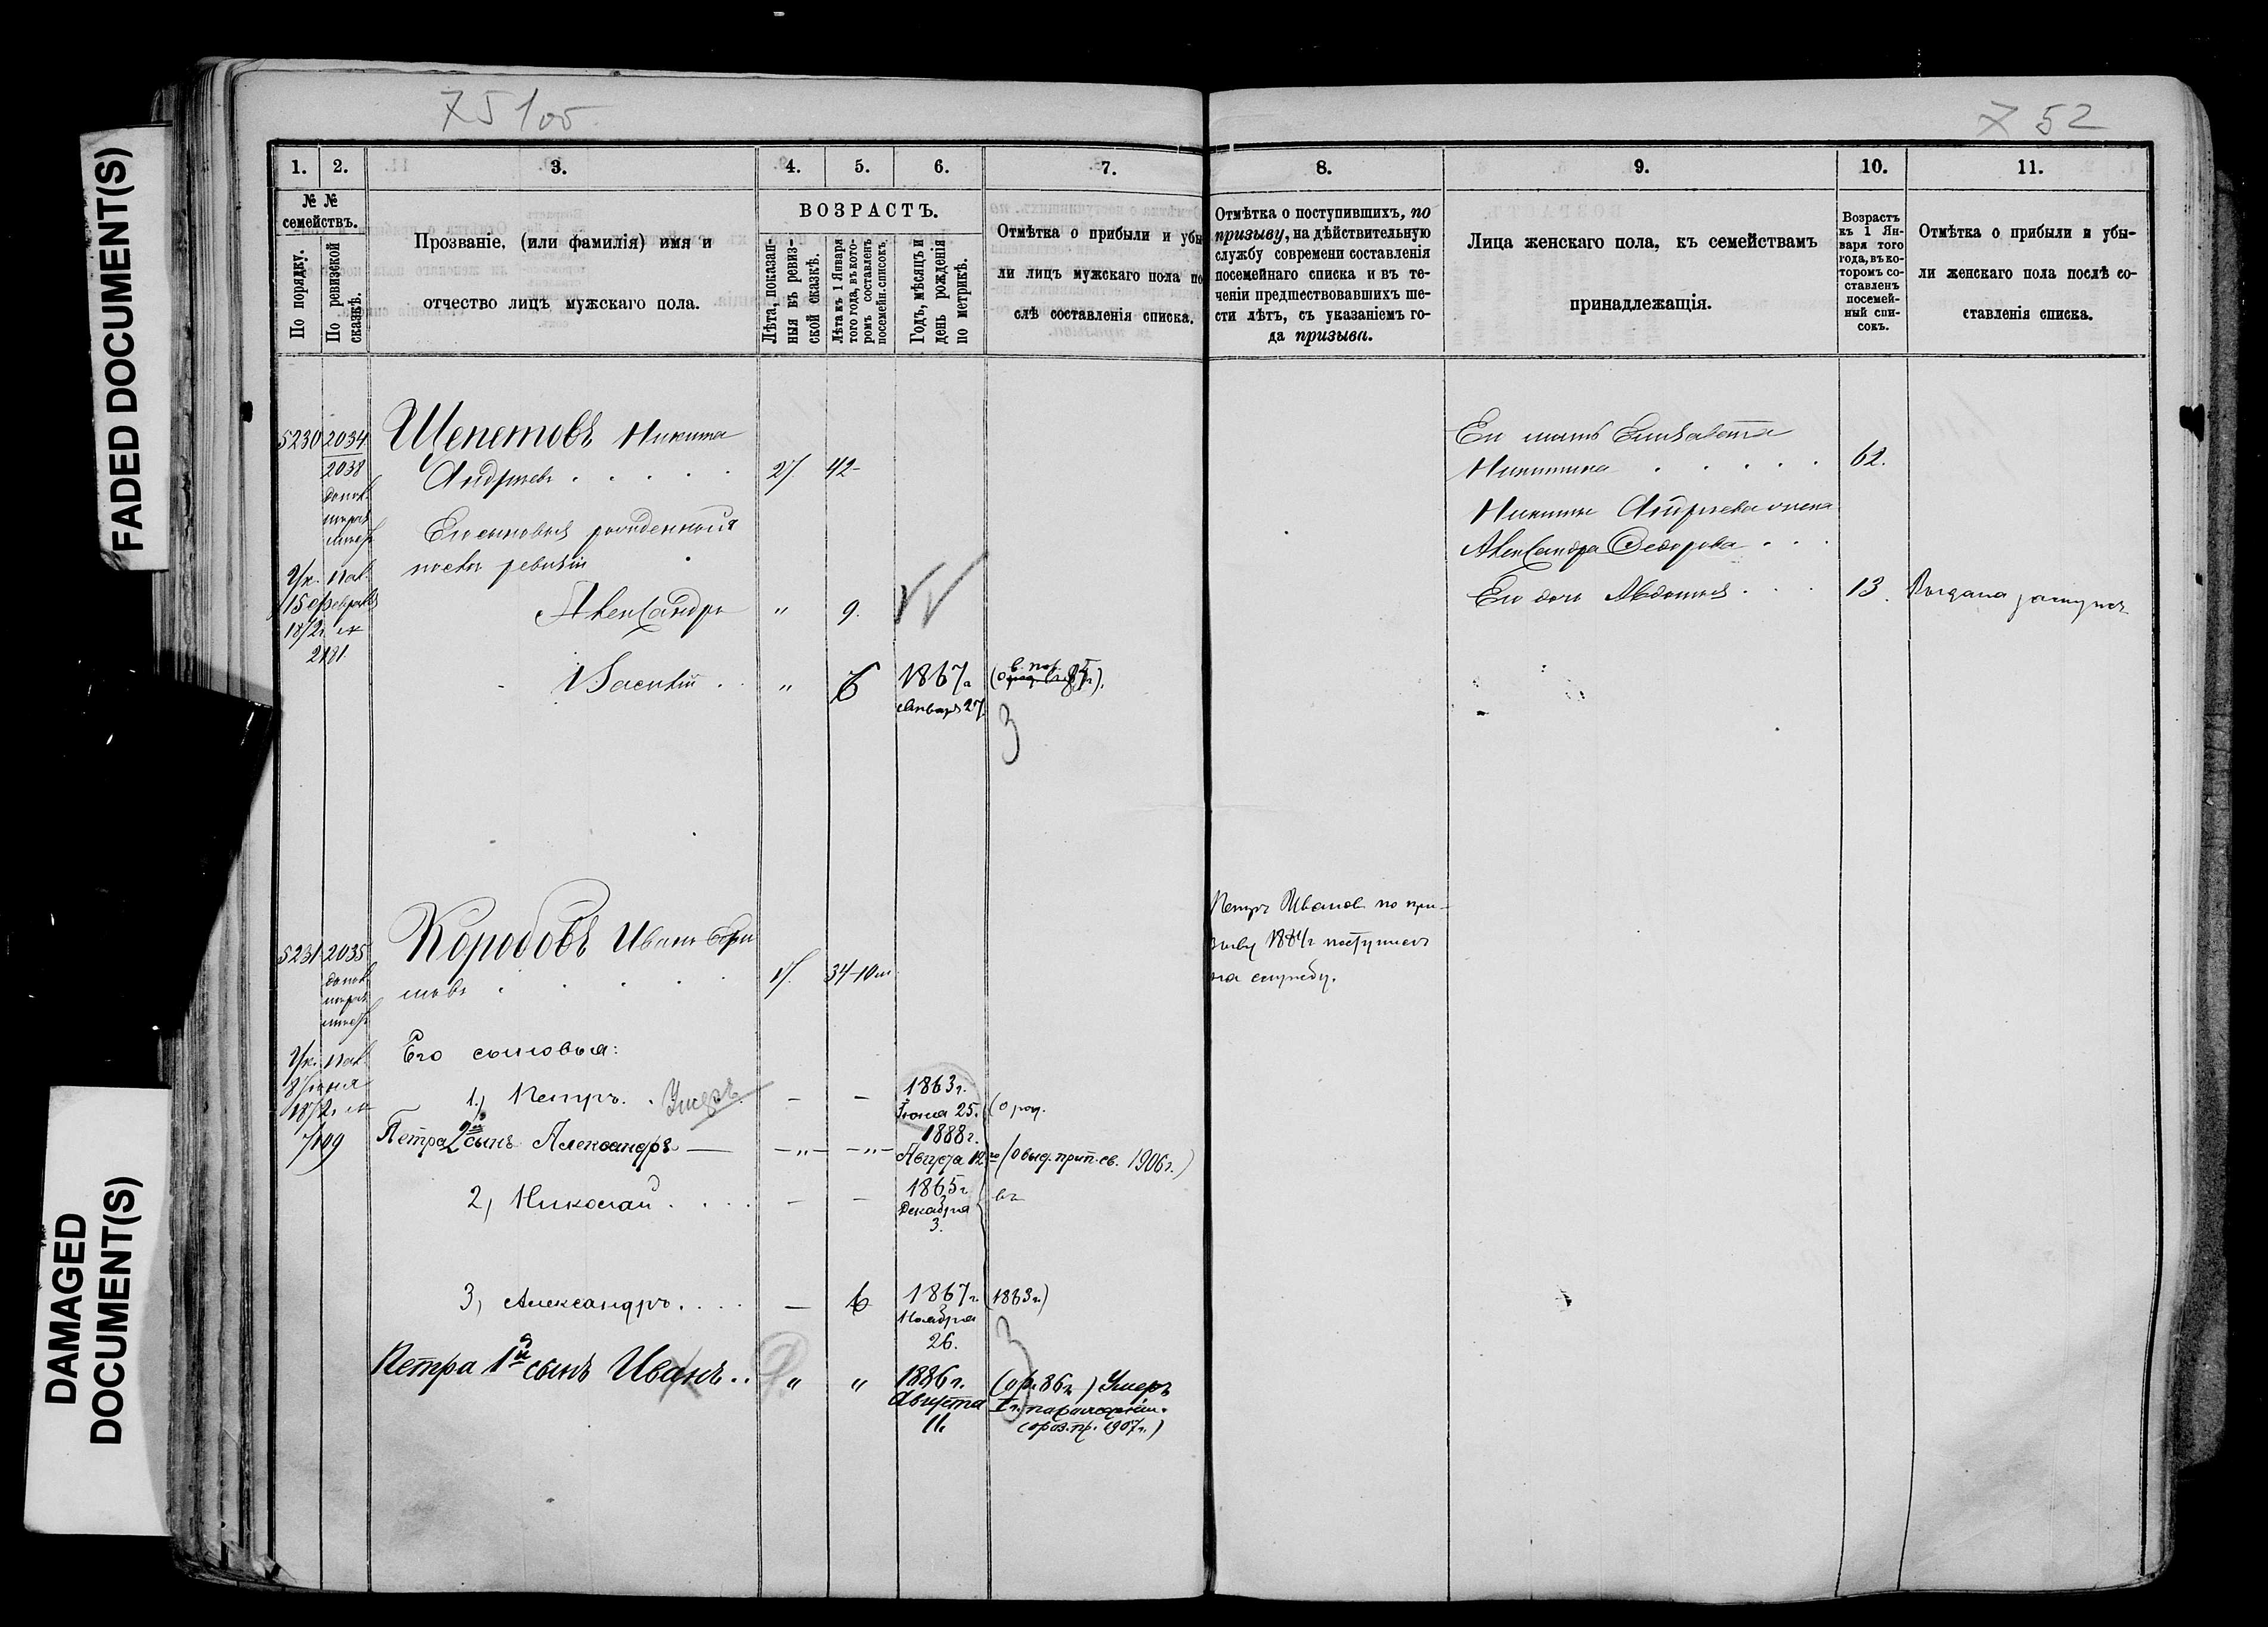 75 100
7 52
FADED DOCUMENT(S)
DAMAGED
DOCUMENT(S)
1. 2. 3. 4. 5. 6. 7. 8. 9. 10. 11.
№ №
семействъ.
По порядку.
По ревизской
сказкѣ.
Прозваніе, (или фамилія) имя и
отчество лицъ мужскаго пола.
ВОЗРАСТЪ.
Лѣта, показан-
ныя въ ревиз-
ской сказкѣ.
Лѣта къ 1 Января
того года, въ кото-
ромъ составленъ
посемейн. списокъ.
Годъ, мѣсяцъ и
день рожденія
по метрикѣ.
Отмѣтка о прибыли и убы
ли лицъ мужскаго пола по
слѣ составленія списка.
Отмѣтка о поступившихъ, по
призыву, на дѣйствительную
службу современи составленія
посемейнаго списка и въ те-
ченіи предшествовавшихъ ше-
сти лѣтъ, съ указаніемъ го-
да призыва.
Лица женскаго пола, къ семействамъ
принадлежащія.
Возрастъ
къ 1 Ян-
варя того
года, въ ко-
торомъ со-
ставленъ
посемей-
ный спи-
сокъ.
Отмѣтка о прибыли и убы-
ли женскаго пола послѣ со-
ставленія списка.
5230 2034 Щепетовъ Никита
2038 Андреевъ 27. 42
Его сыновья рожденныя
послѣ ревизіи
Ук. Пал.
15 февраля
1872 г. №
2181
Александръ " 9.
Василій " 6 1867 г.
Января 27.
3
Его мать Елизавета
Никитина 62.
Никиты Андреева жена
Александра Федорова
Его дочь Авдотья 13. Выдана замужъ
5231 2035 Коробовъ Иванъ
17. 34
Петръ Ивановъ по при-
зыву 1884 г. поступилъ
на службу.
Ук. Пал.
1872 г. №
7109
Его сыновья:
1.) Петръ. Умеръ. — — 1863 г.
Іюня 25. (о род.
Петра 2й сынъ Александръ — — " — — " — 1888 г.
Августа 12 (о выд. прип. св. 1906 г.)
2) Николай — — 1865 г.
Декабря
3.
въ
3) Александръ — 6 1867 г. (1883 г.)
Ноября
26.
Петра 1й сынъ Иванъ " " 1886 г. (о р. 86 г.) Умеръ
Августа
11.
(о раз. пр. 1907 г.)
3